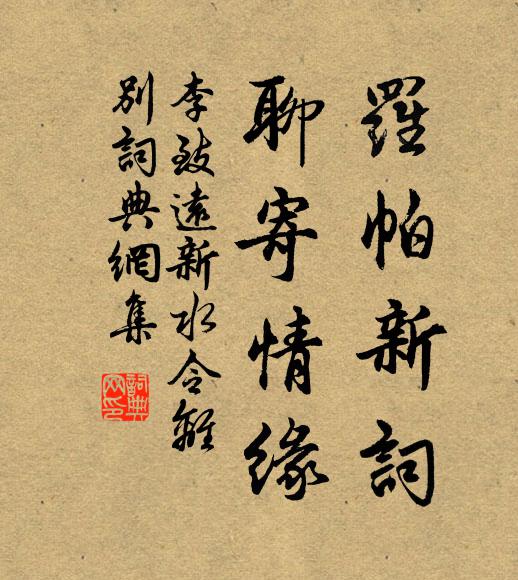 羅帕新詞
聊寄情緣
李致遠新水令離
別詞典網集
詞典
网印